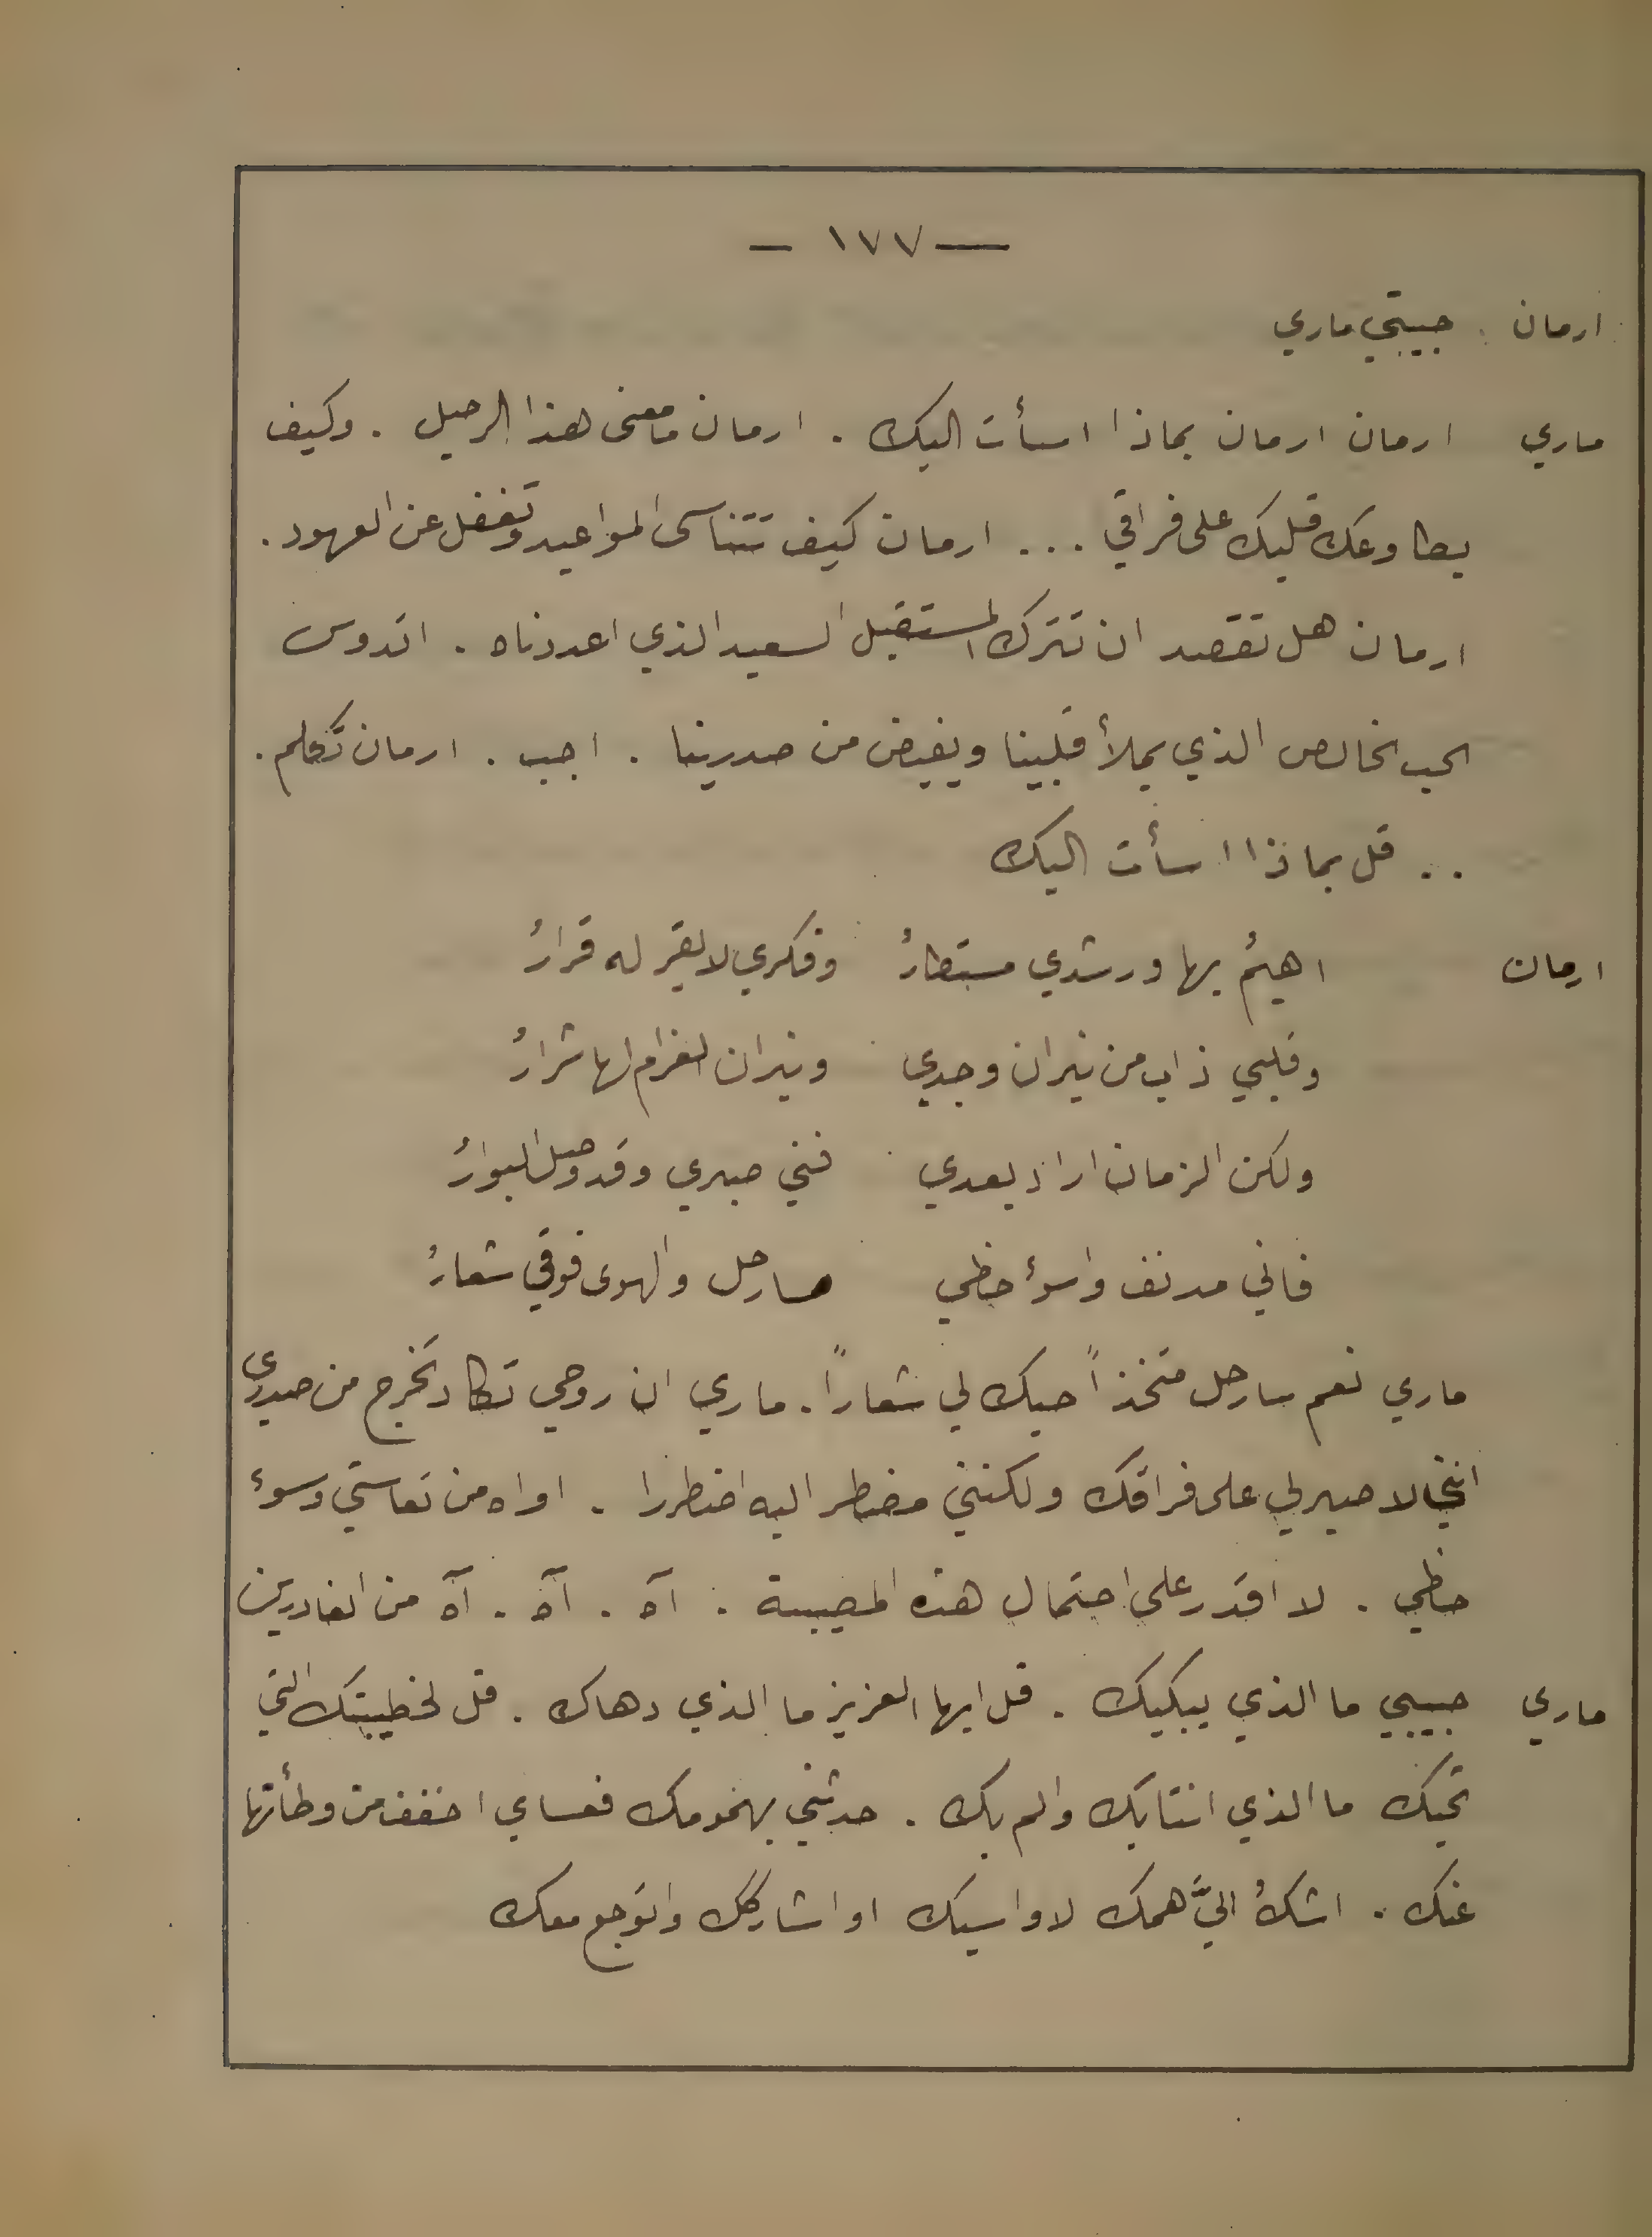 — ١٧٧ —
ارمان . حبيبتي ماري
ماري ارمان ارمان بماذا اسأت اليك . ارمان ما معنى هذا الرحيل . وكيف
يطاوعك قلبك على فراقي ... ارمان كيف تتناسى المواعيد وتغفل عن العهود .
ارمان هل تقصد ان تترك المستقبل السعيد الذي اعددناه . اتدوس
الحب الخالص الذي يملأ قلبينا ويفيض من صدرينا . اجب . ارمان تكلم .
.. قل بماذا اسأت اليك
ارمان اهيمُ بها ورشدي مستطارُ وفكري لا يقر له قرارُ
وقلبي ذاب من نيران وجدي ونيران الغرام لها شرارُ
ولكن الزمان اراد بعدي ففني صبري وقد وصل البوارُ
فاني مدنف واسوءُ حظي سارحل والهوى فوقي شعارُ
ماري نعم سارحل متخذاً حبك لي شعاراً . ماري ان روحي تكاد تخرج من صدري
انني لا صبر لي على فراقك ولكنني مضطر اليه اضطررا . اواه من تعاستي وسوء
حظي . لا اقدر على احتمال هذه المصيبة . آه . آه . آه من الغادرين
ماري حبيبي ما الذي يبكيك . قل ايها العزيز ما الذي دهاك . قل لخطيبتك التي
تحبك ما الذي انتابك والم بك . حدثني بهمومك فعساي اخفف من وطأتها
عنك . اشكُ اليَّ همك لاواسيك او اشاركك واتوجع معك